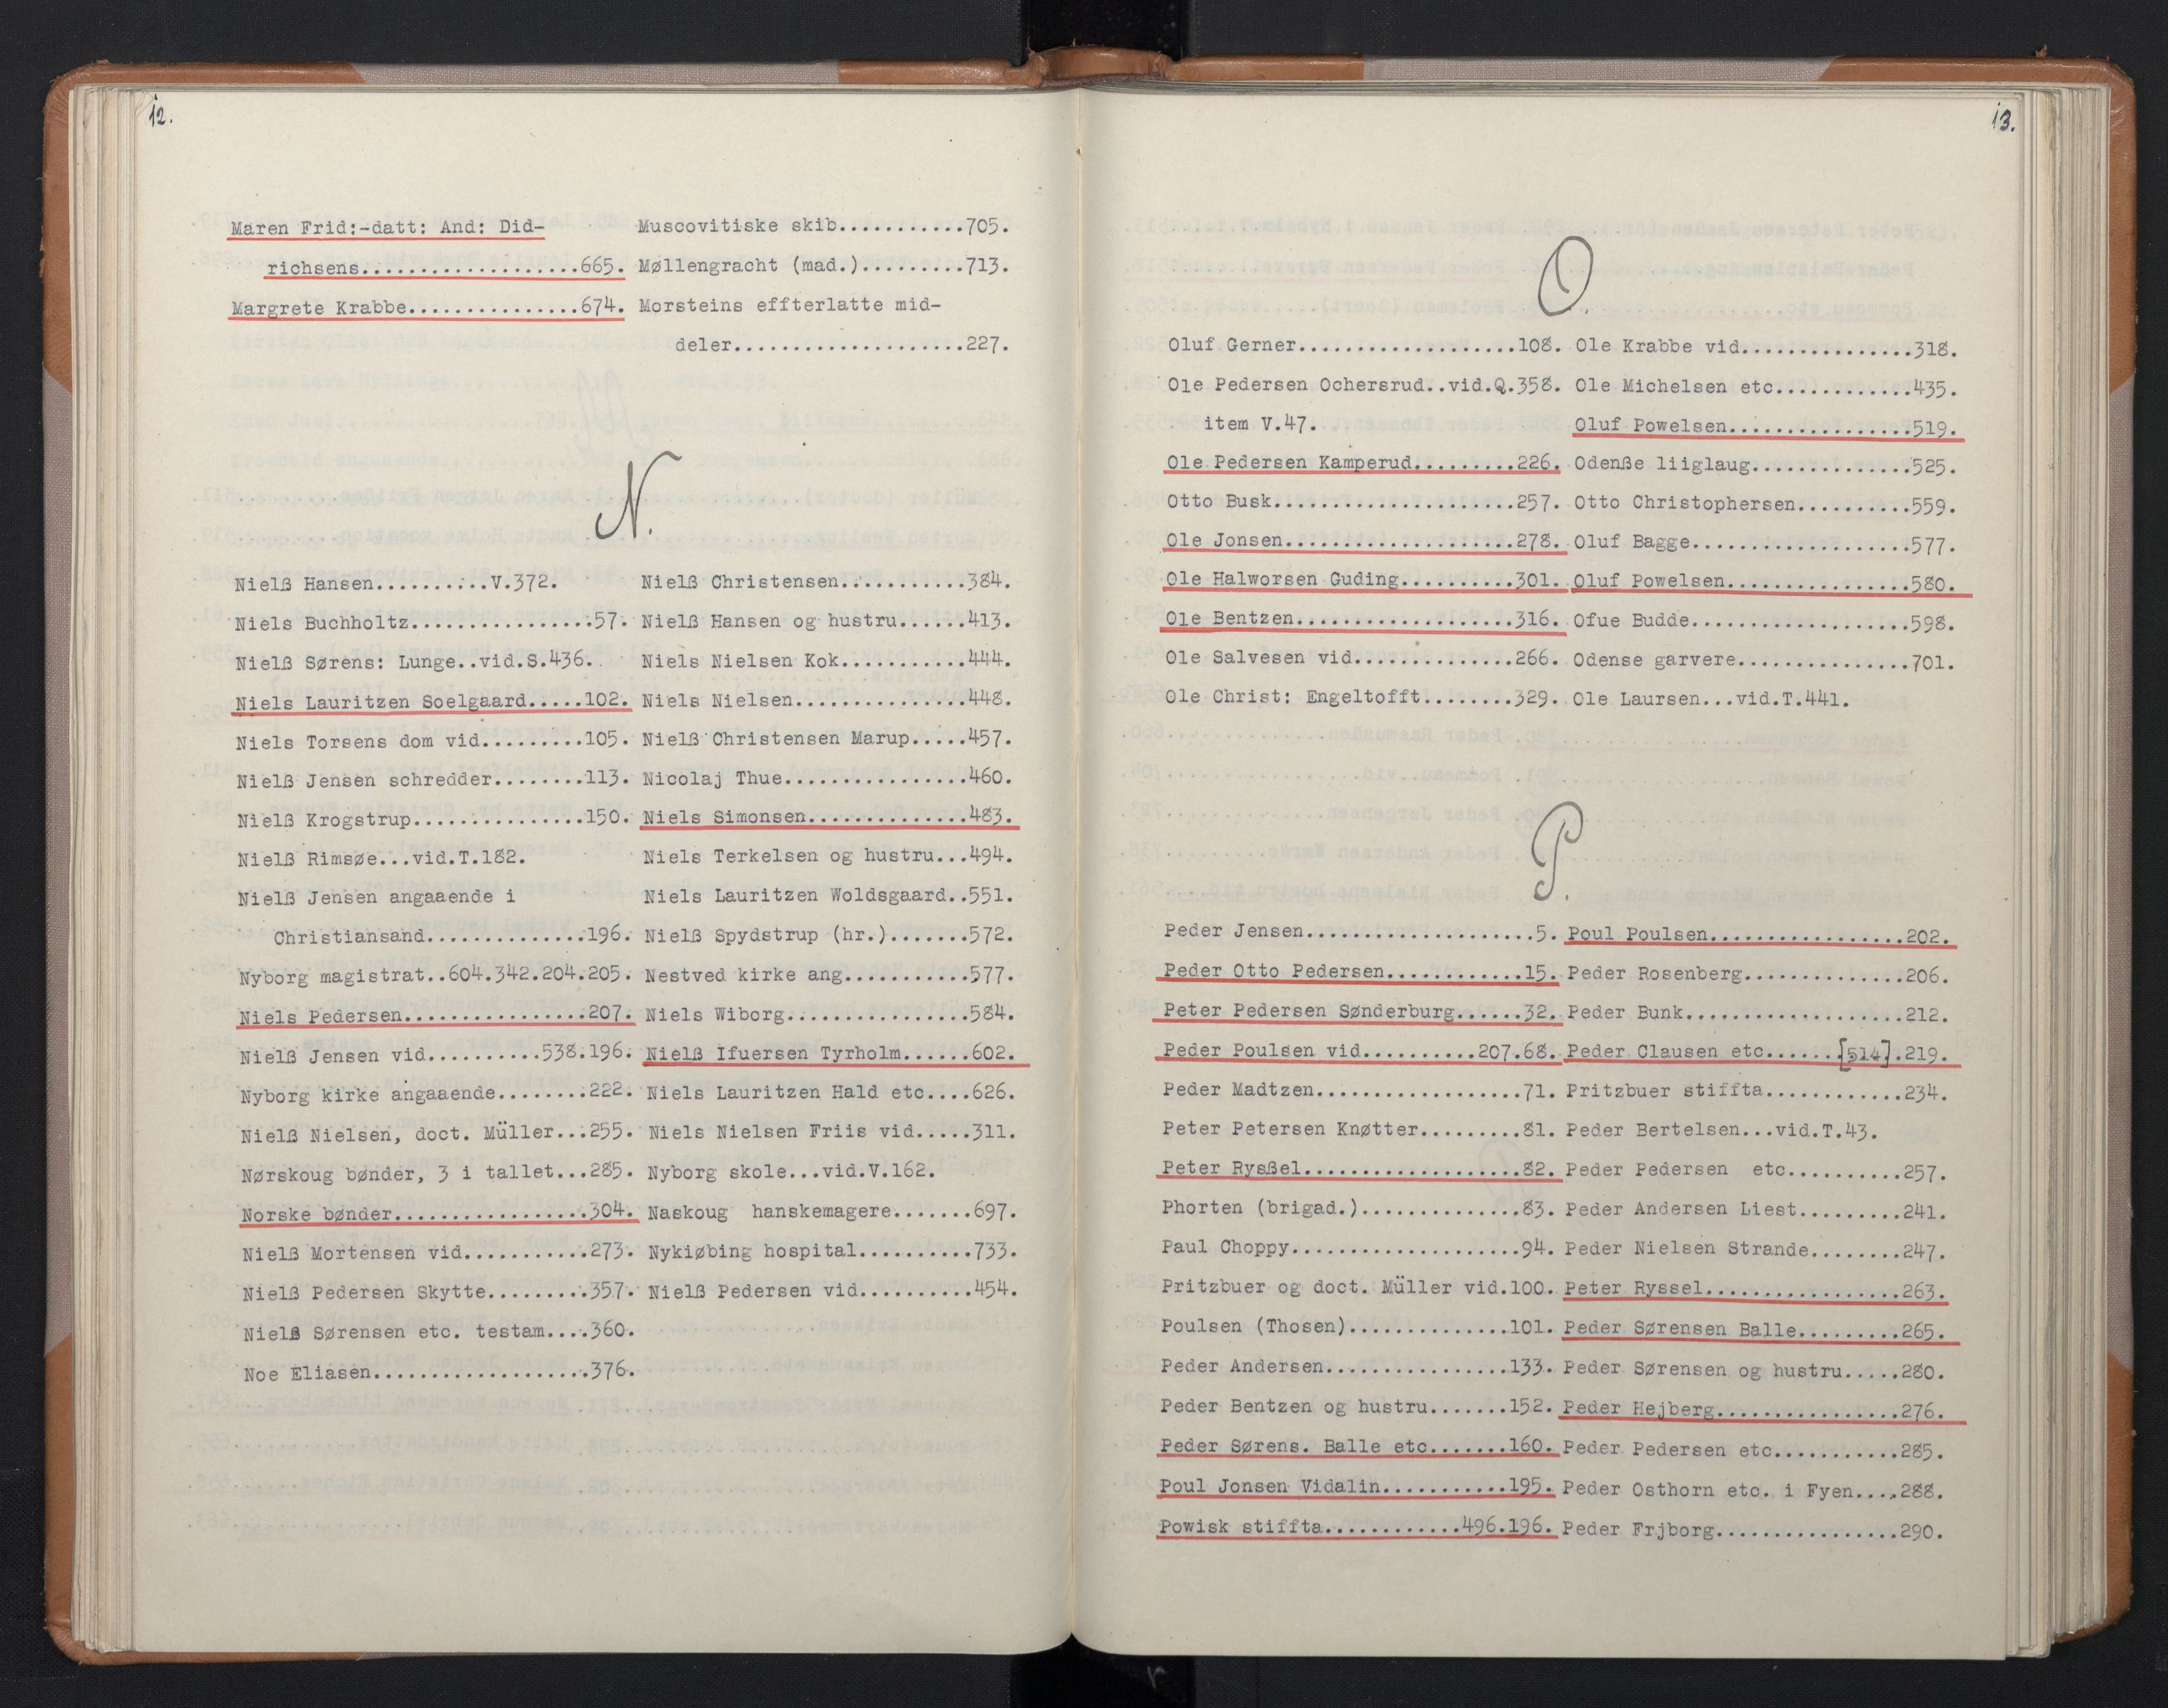 12.
Maren Frid:-datt: And: Did-
richsens...................665.
Margrete Krabbe...............674.
Muscovitiske skib...........705.
Møllengracht (mad.).........713.
Morsteins effterlatte mid-
deler....................227.
N.
Nielß Hansen..........V.372.
Niels Buchholtz................57.
Nielß Sørens: Lunge..vid.S.436.
Niels Lauritzen Soelgaard.....102.
Niels Torsens dom vid.........105.
Nielß Jensen schredder........113.
Nielß Krogstrup...............150.
Nielß Rimsøe...vid.T.182.
Nielß Jensen angaaende i
Christiansand..............196.
Nyborg magistrat..604.342.204.205.
Niels Pedersen................207.
Nielß Jensen vid..........538.196.
Nyborg kirke angaaende........222.
Nielß Nielsen, doct. Müller...255.
Nørskoug bønder, 3 i tallet...285.
Norske bønder.................304.
Nielß Mortensen vid...........273.
Nielß Pedersen Skytte.........357.
Nielß Sørensen etc. testam....360.
Noe Eliasen...................376.
Nielß Christensen...........384.
Nielß Hansen og hustru......413.
Niels Nielsen Kok...........444.
Niels Nielsen...............448.
Nielß Christensen Marup.....457.
Nicolaj Thue................460.
Niels Simonsen..............483.
Niels Terkelsen og hustru...494.
Niels Lauritzen Woldsgaard..551.
Nielß Spydstrup (hr.).......572.
Nestved kirke ang...........577.
Niels Wiborg................584.
Nielß Ifuersen Tyrholm......602.
Niels Lauritzen Hald etc....626.
Niels Nielsen Friis vid.....311.
Nyborg skole...vid.V.162.
Naskoug hanskemagere.......697.
Nykiøbing hospital..........733.
Nielß Pedersen vid..........454.
13.
O.
Oluf Gerner...................108.
Ole Pedersen Ochersrud..vid.Q.358.
item V.47.
Ole Pedersen Kamperud.........226.
Otto Busk.....................257.
Ole Jonsen....................278.
Ole Halworsen Guding..........301.
Ole Bentzen...................316.
Ole Salvesen vid..............266.
Ole Christ: Engeltofft........329.
Ole Krabbe vid...............318.
Ole Michelsen etc............435.
Oluf Powelsen................519.
Odenße liiglaug..............525.
Otto Christophersen..........559.
Oluf Bagge...................577.
Oluf Powelsen................580.
Ofue Budde...................598.
Odense garvere...............701.
Ole Laursen...vid.T.441.
P.
Peder Jensen....................5.
Peder Otto Pedersen............15.
Peter Pedersen Sønderburg......32.
Peder Poulsen vid..........207.68.
Peder Madtzen..................71.
Peter Petersen Knøtter.........81.
Peter Rysßel...................82.
Phorten (brigad.)..............83.
Paul Choppy....................94.
Pritzbuer og doct. Müller vid.100.
Poulsen (Thosen)..............101.
Peder Andersen................133.
Peder Bentzen og hustru.......152.
Peder Sørens. Balle etc.......160.
Poul Jonsen Vidalin...........195.
Powisk stiffta............496.196.
Poul Poulsen.................202.
Peder Rosenberg..............206.
Peder Bunk...................212.
Peder Clausen etc......[514].219.
Pritzbuer stiffta............234.
Peder Bertelsen...vid.T.43.
Peder Pedersen etc..........257.
Peder Andersen Liest.........241.
Peder Nielsen Strande........247.
Peter Ryssel.................263.
Peder Sørensen Balle.........265.
Peder Sørensen og hustru.....280.
Peder Hejberg................276.
Peder Pedersen etc...........285.
Peder Osthorn etc. i Fyen....288.
Peder Frjborg................290.